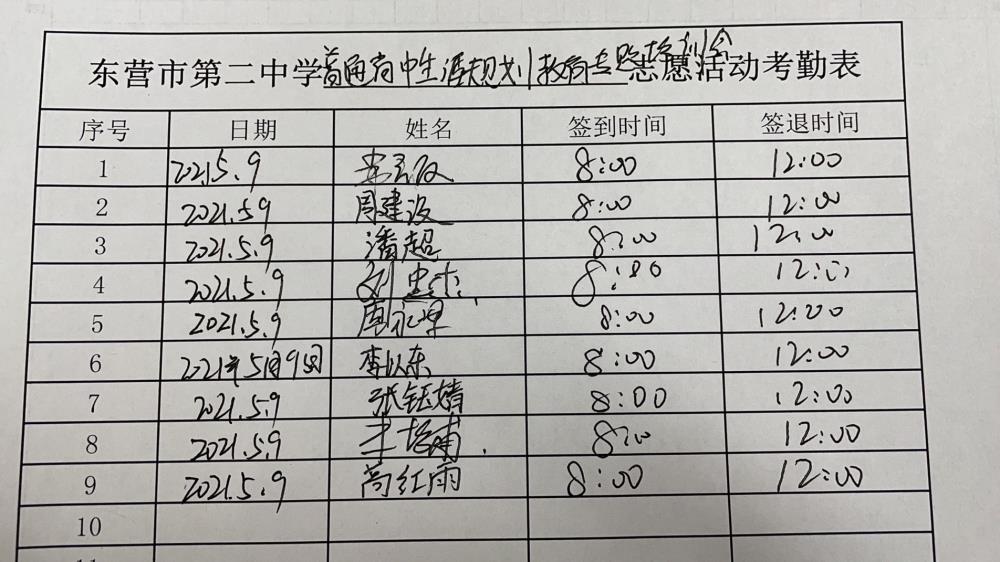 东营市第二中学普通高中生涯规划教育专题培训会志愿活动考勤表
序号 日期 姓名 签到时间 签退时间
1 2021.5.9 8:00 12:00
2 2021.5.9 周建波 8:00 12:00
3 2021.5.9 潘超 8:00 12:00
4 2021.5.9 刘忠杰 8:00 12:00
5 2021.5.9 8:00 12:00
6 2021年5月9日 李以东 8:00 12:00
7 2021.5.9 张钰婧 8:00 12:00
8 2021.5.9 王培甫 8:00 12:00
9 2021.5.9 高红雨 8:00 12:00
10